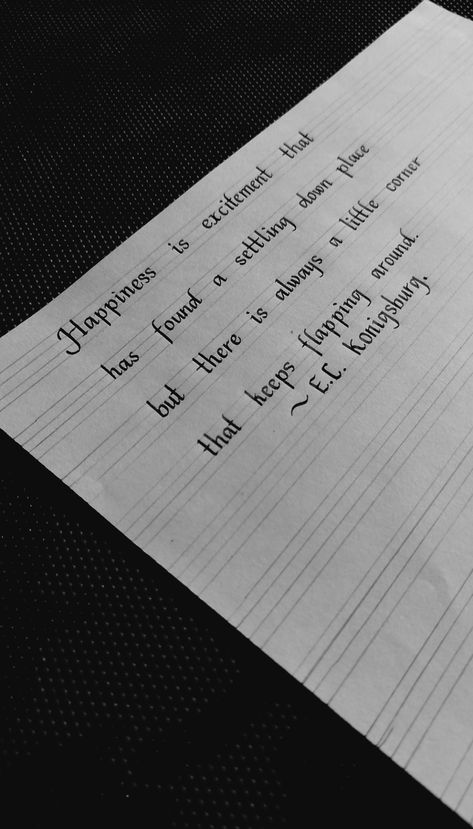 Happiness is excitement that
has found a settling down place
but there is always a little corner
that keeps flapping around.
~ E.C. Konigsburg.